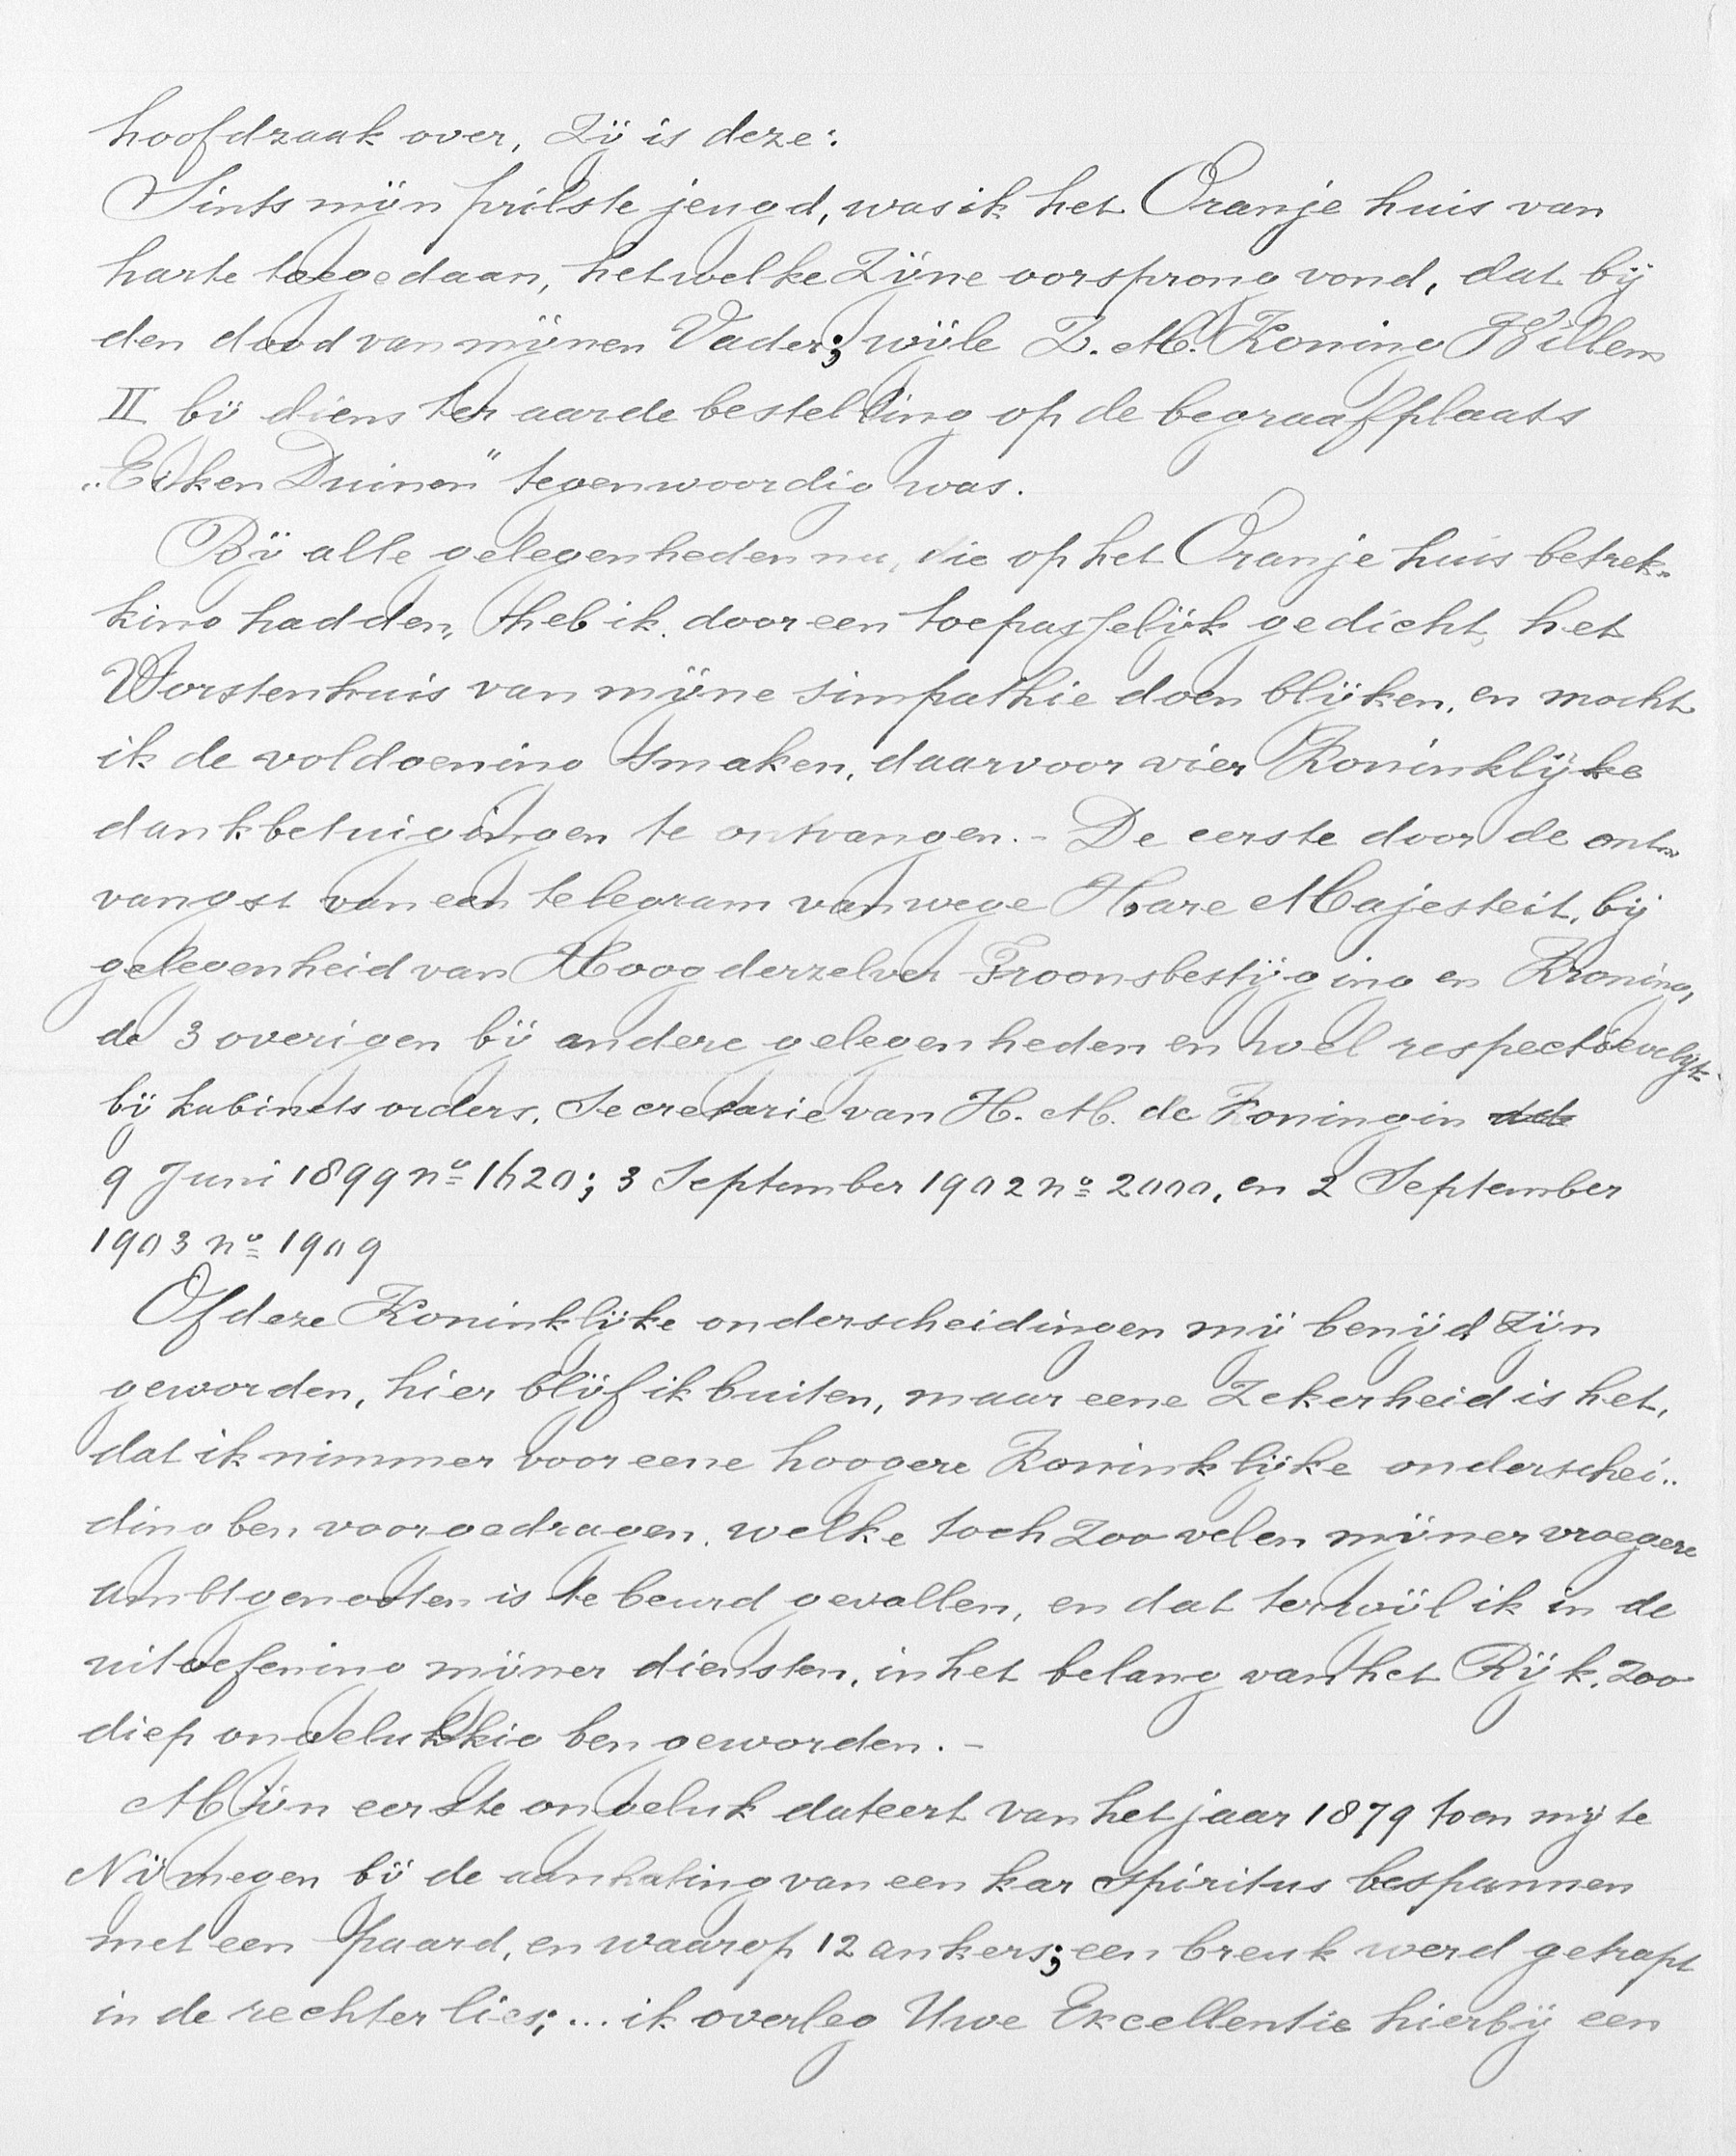 hoofdzaak over, Zij is deze:
Sints mijn prilste jeugd, was ik het Oranje huis van
harte toegedaan, hetwelke Zijne oorsprong vond, dat bij
den dood van mijnen Vader; wijle Z. M. Koning Willem
II bij diens ter aarde bestelling op de begraafplaats
„Eiken Duinen" tegenwoordig was.
Bij alle gelegenheden nu, die op het Oranje huis betrek-
king hadden, heb ik door een toepasselijk gedicht, het
Vorstenhuis van mijne simpathie doen blijken, en mocht
ik de voldoening smaken, daarvoor vier Koninklijke
dankbetuigingen te ontvangen. - De eerste door de ont-
vangst van een telegram vanwege Hare Majesteit, bij
gelegenheid van Hoogderzelver Troonsbestijging en Kroning,
de 3 overigen bij andere gelegenheden en wel respectievelijk
bij kabinets orders, Secretarie van H. M. de Koningin ddo
9 Juni 1899 no 1620; 3 September 1902 no 2000, en 2 September
1903 no 1909
Of deze Koninklijke onderscheidingen mij benijd zijn
geworden, hier blijf ik buiten, maar eene Zekerheid is het,
dat ik nimmer voor eene hoogere Koninklijke onderschei-
ding ben voorgedragen, welke toch Zoo velen mijner vroegere
ambtgenooten is te beurd gevallen, en dat terwijl ik in de
uitoefening mijner diensten, in het belang van het Rijk, Zoo
diep ongelukkig ben geworden. -
Mijn eerste ongeluk dateert van het jaar 1879 toen mij te
Nijmegen bij de aanhaling van een kar spiritus bespannen
met een paard, en waarop 12 ankers; een breuk werd getrapt
in de rechter lies; ... ik overleg Uwe Excellentie hierbij een